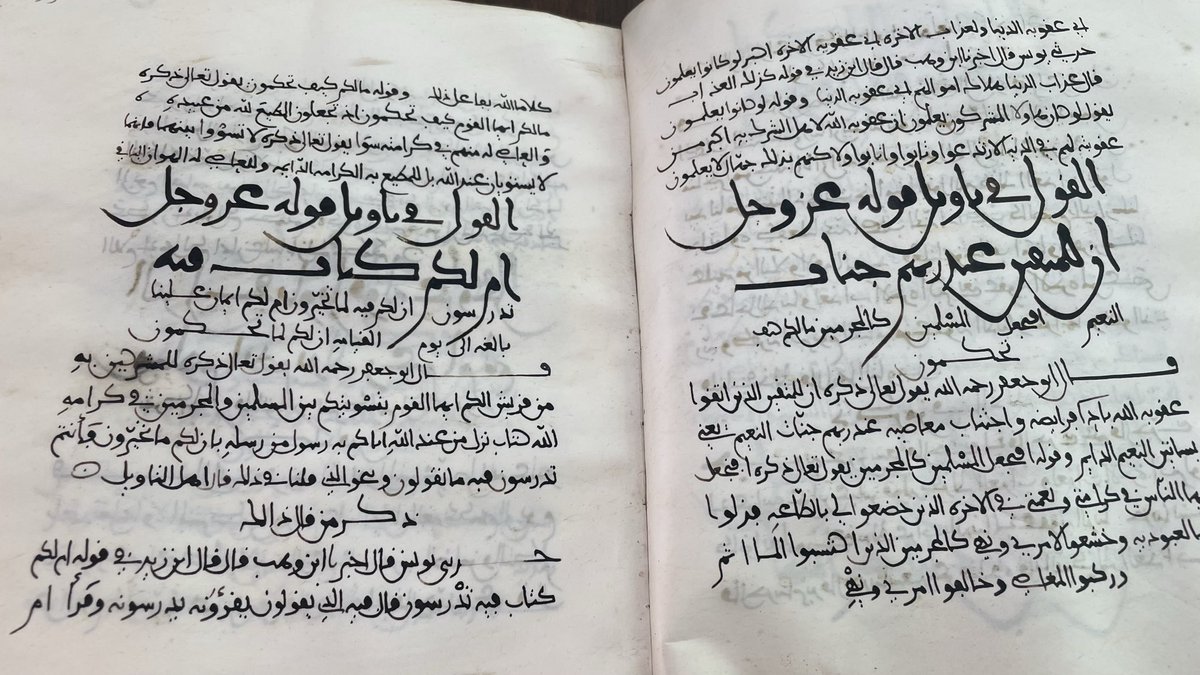 اي عقوبه الدنيا ولعذاب الاخره اي عقوبه الاخره اكبر لو كانوا يعلمون
حدثني يونس قال اخبرنا ابن وهب قال قال ابن زيد في قوله كذلك العذاب
قال عذاب الدنيا هلاك اموالهم اي عقوبه الدنيا وقوله لو كانوا يعلمون
يقول لو كان هاولا المشركون يعلمون ان عقوبه الله لاهل الشرك به اكبر من
عقوبته لهم في الدنيا لارتدعوا وتابوا وانابوا ولاكنهم بذلك جهال لا يعلمون
القول في تاويل قوله عز وجل
ان للمتقين عند ربهم جنات
النعيم افنجعل المسلمين كالمجرمين مالكم كيف
تحكمون
قال ابو جعفر رحمه الله يقول تعالى ذكره ان للمتقين الذين اتقوا
عقوبه الله باداء فرائضه واجتناب معاصيه عند ربهم جنات النعيم يعني
بساتين النعيم الدايم وقوله افنجعل المسلمين كالمجرمين يقول تعالى ذكره افنجعل
الناس في كرامتي ونعمتي في الاخره الذين خضعوا لي بالطاعه وذلوا
بالعبوديه وخشعوا لامري ونهيي كالمجرمين الذين اكتسبوا الماثم
وركبوا المعاصي وخالفوا امري ونهيي
كلا ما الله بفاعل ذلك وقوله مالكم كيف تحكمون يقول تعالى ذكره
مالكم ايها القوم كيف تحكمون اذ تجعلون المطيع لله من عبيده
والعاصي له منهم في كرامته سوا يقول تعالى ذكره لا تسووا بينهما فانهما
لا يستويان عند الله بل المطيع له الكرامه الدايمه والعاصي له الهوان الباقي
القول في تاويل قوله عز وجل
ام لكم كتاب فيه
تدرسون ان لكم فيه لما تخيرون ام لكم ايمان علينا
بالغه الى يوم القيامه ان لكم لما تحكمون
قال ابو جعفر رحمه الله يقول تعالى ذكره للمشركين به
من قريش الكم ايها القوم بتسويتكم بين المسلمين والمجرمين في كرامه
الله كتاب نزل من عند الله اتاكم به رسول من رسله بان لكم ما تخيرون فانتم
تدرسون فيه ما تقولون وبنحو الذي قلنا في ذلك قال اهل التاويل
ذكر من قال ذلك
حدثني يونس قال اخبرنا ابن وهب قال قال ابن زيد في قوله ام لكم
كتاب فيه تدرسون قال فيه الذي يقولون يقرؤنه يدرسونه وقرا ام